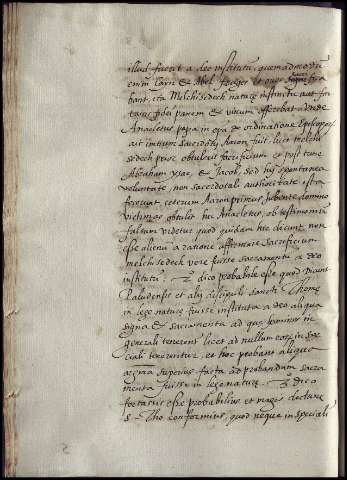 illud fuerit a deo institutū, quemadmodū
enim Cain & Abel fruges & oues suas
bant, ita Melchisedech naturæ instinctu aut for
tassis fidei panem & vinum offerebat
Anacletus papa in epa de ordinatione Episcoporū
ait initium sacerdotij Aaron fuit, licet melchi
sedech prior obtulerit sacrificium et post eum
Abraham Isac, & Jacob, sed hi spontanea
voluntate non sacerdotali authoritate ista
fecerunt, ceterum Aaron primus iubente domino
victimas obtulit hec Anacletus, ob testimoniū
falsum videtur quod quidam hic dicunt non
esse alienū a ratione affirmare sacrificium
melchisedech vere fuisse sacramentū a deo
institutū. 2º dico probabile esse quod dicunt
Paludensis et alij discipuli sancti Thomę
in lege naturę fuisse instituta a deo aliqua
signa & sacramenta ad quę homines in
generali tenerent licet ad nullum eorū in spe
ciali tenerentur, et hoc probant aliqua
argūta superius facta ad probandum sacra
menta fuisse in lege naturę. 3º dico
fortassis esse probabilius et magis declaro
S. Tho conformius, quod neque in speciali